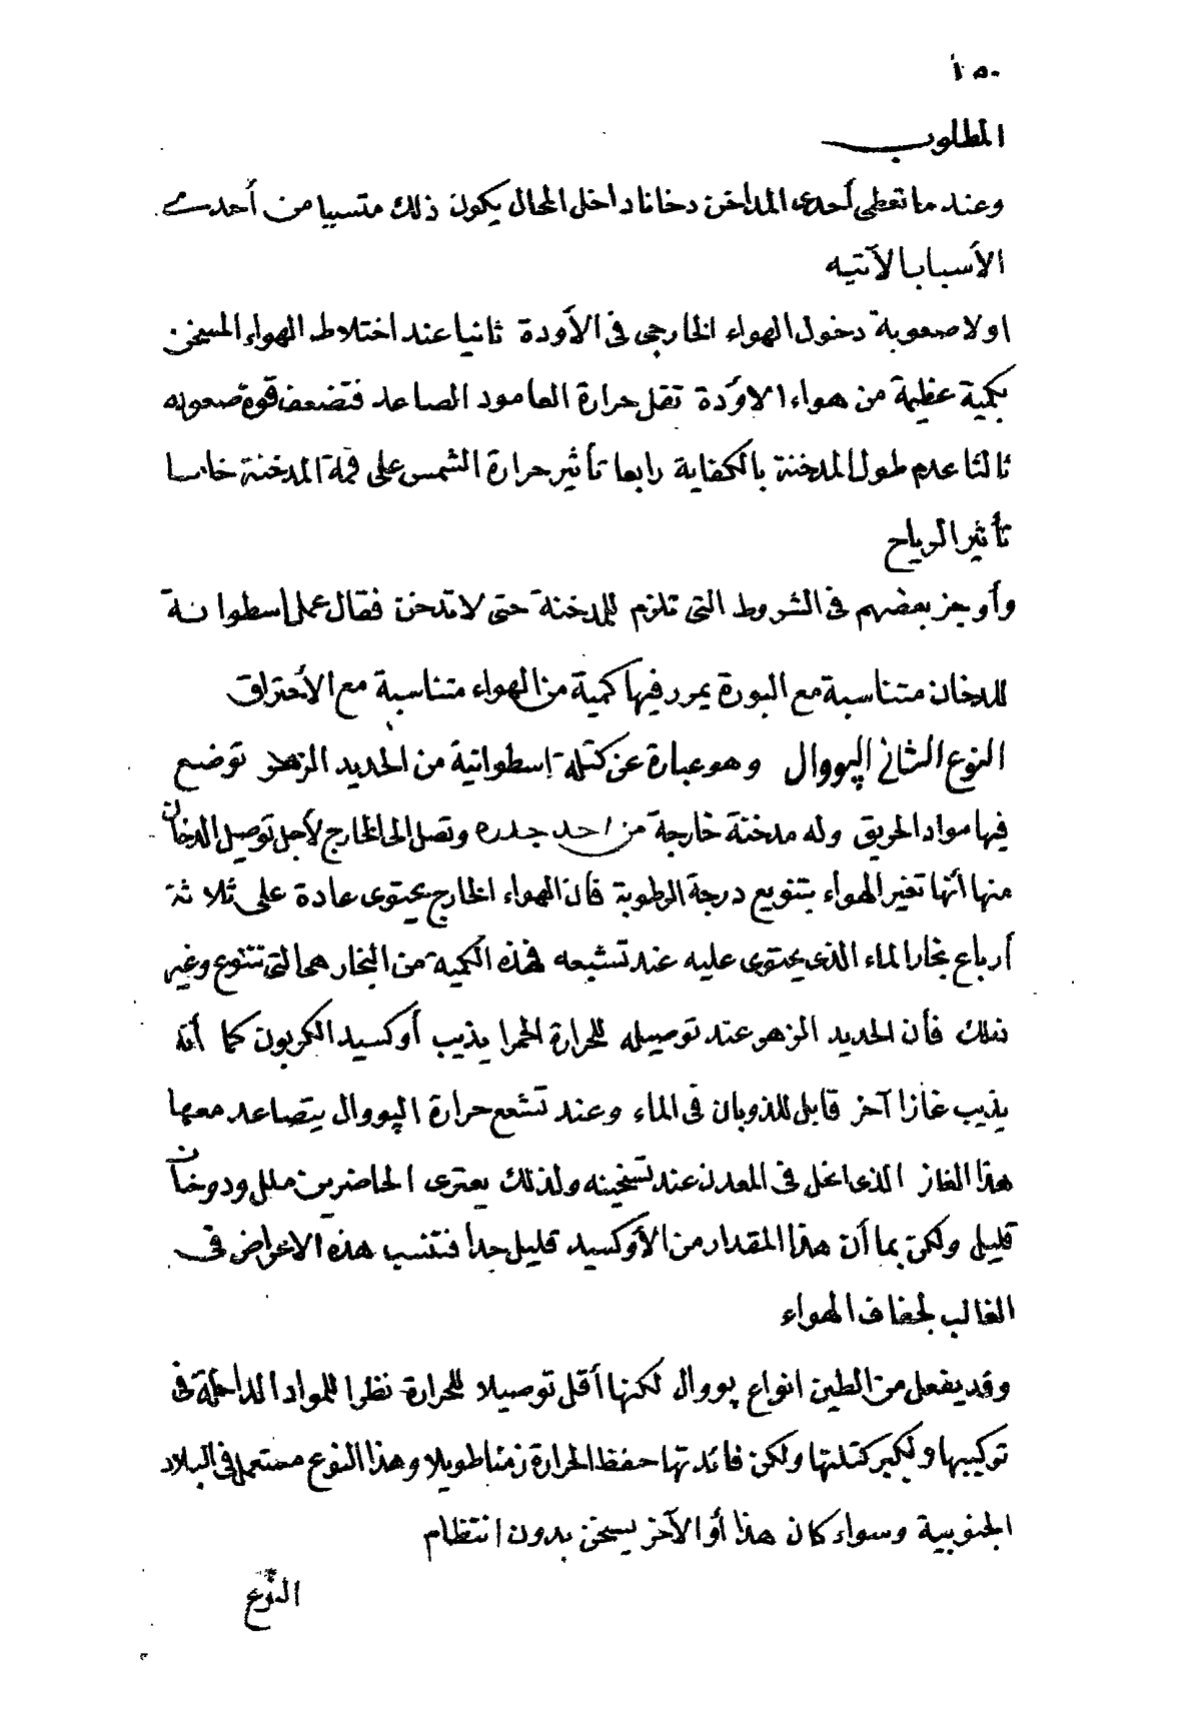 ١٥٠
المطلوب
وعند ما تعطى أحدى المداخن دخانا داخل المحال يكون ذلك متسببا من أحدى
الأسباب الآتيه
اولا صعوبة دخول الهواء الخارجى فى الأودة ثانيا عند اختلاط الهواء المسخن
بكمية عظيمة من هواء الاوَدة تقل حرارة العامود الصاعد فتضعف قوة صعوده
ثالثا عدم طول المدخنة بالكفاية رابعا تأثير حرارة الشمس على قمة المدخنة خامسا
تأثير الرياح
وأوجز بعضهم فى الشروط التى تلزم للمدخنة حتى لا تدخن فقال عمل اسطوانة
للدخان متناسبة مع البورة يمرر فيها كمية من الهواء متناسبة مع الأحتراق
النوع الثانى الپووال وهو عبارة عن كتلة إسطوانية من الحديد الزهر توضع
فيها مواد الحريق وله مدخنة خارجة من احد جدره وتصل الى الخارج لأجل توصيل الدخان
منها أنها تغير الهواء بتنويع درجة الرطوبة فأن الهواء الخارج يحتوى عادة على ثلاثة
أرباع بخار الماء الذى يحتوى عليه عند تشبعه فهذه الكمية من البخار هى التى تتنوع وغير
ذلك فأن الحديد الزهر عند توصيله للحرارة الحمرا يذيب أوكسيد الكربون كما أنه
يذيب غازا آخر قابل للذوبان فى الماء وعند تشعع حرارة الپووال يتصاعد معها
هذا الغاز الذى انحل فى المعدن عند تسخينه ولذلك يعترى الحاضرين ملل ودوخان
قليل ولكن بما أن هذا المقدار من الأوكسيد قليل جدا فتنسب هذه الاعراض فى
الغالب لجفاف الهواء
وقد يفعل من الطين انواع پووال لكنها أقل توصيلا للحرارة نظرا للمواد الداخلة فى
تركيبها ولكبر كتلتها ولكن فائدتها حفظ الحرارة زمنا طويلا وهذا النوع مستعمل فى البلاد
الجنوبية وسواء كان هذا أو الآخر يسخن بدون انتظام
النوع